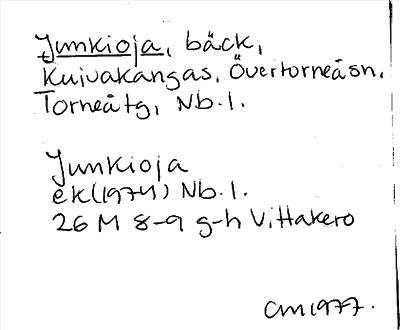 Junkioja, bäck,
Kuivakangas, Övertorneå sn,
Torneå tg, Nb.l.
Junkioja
ek (1974) Nb.l.
26 M 8-9 g-h Vittakero
CM 1977.